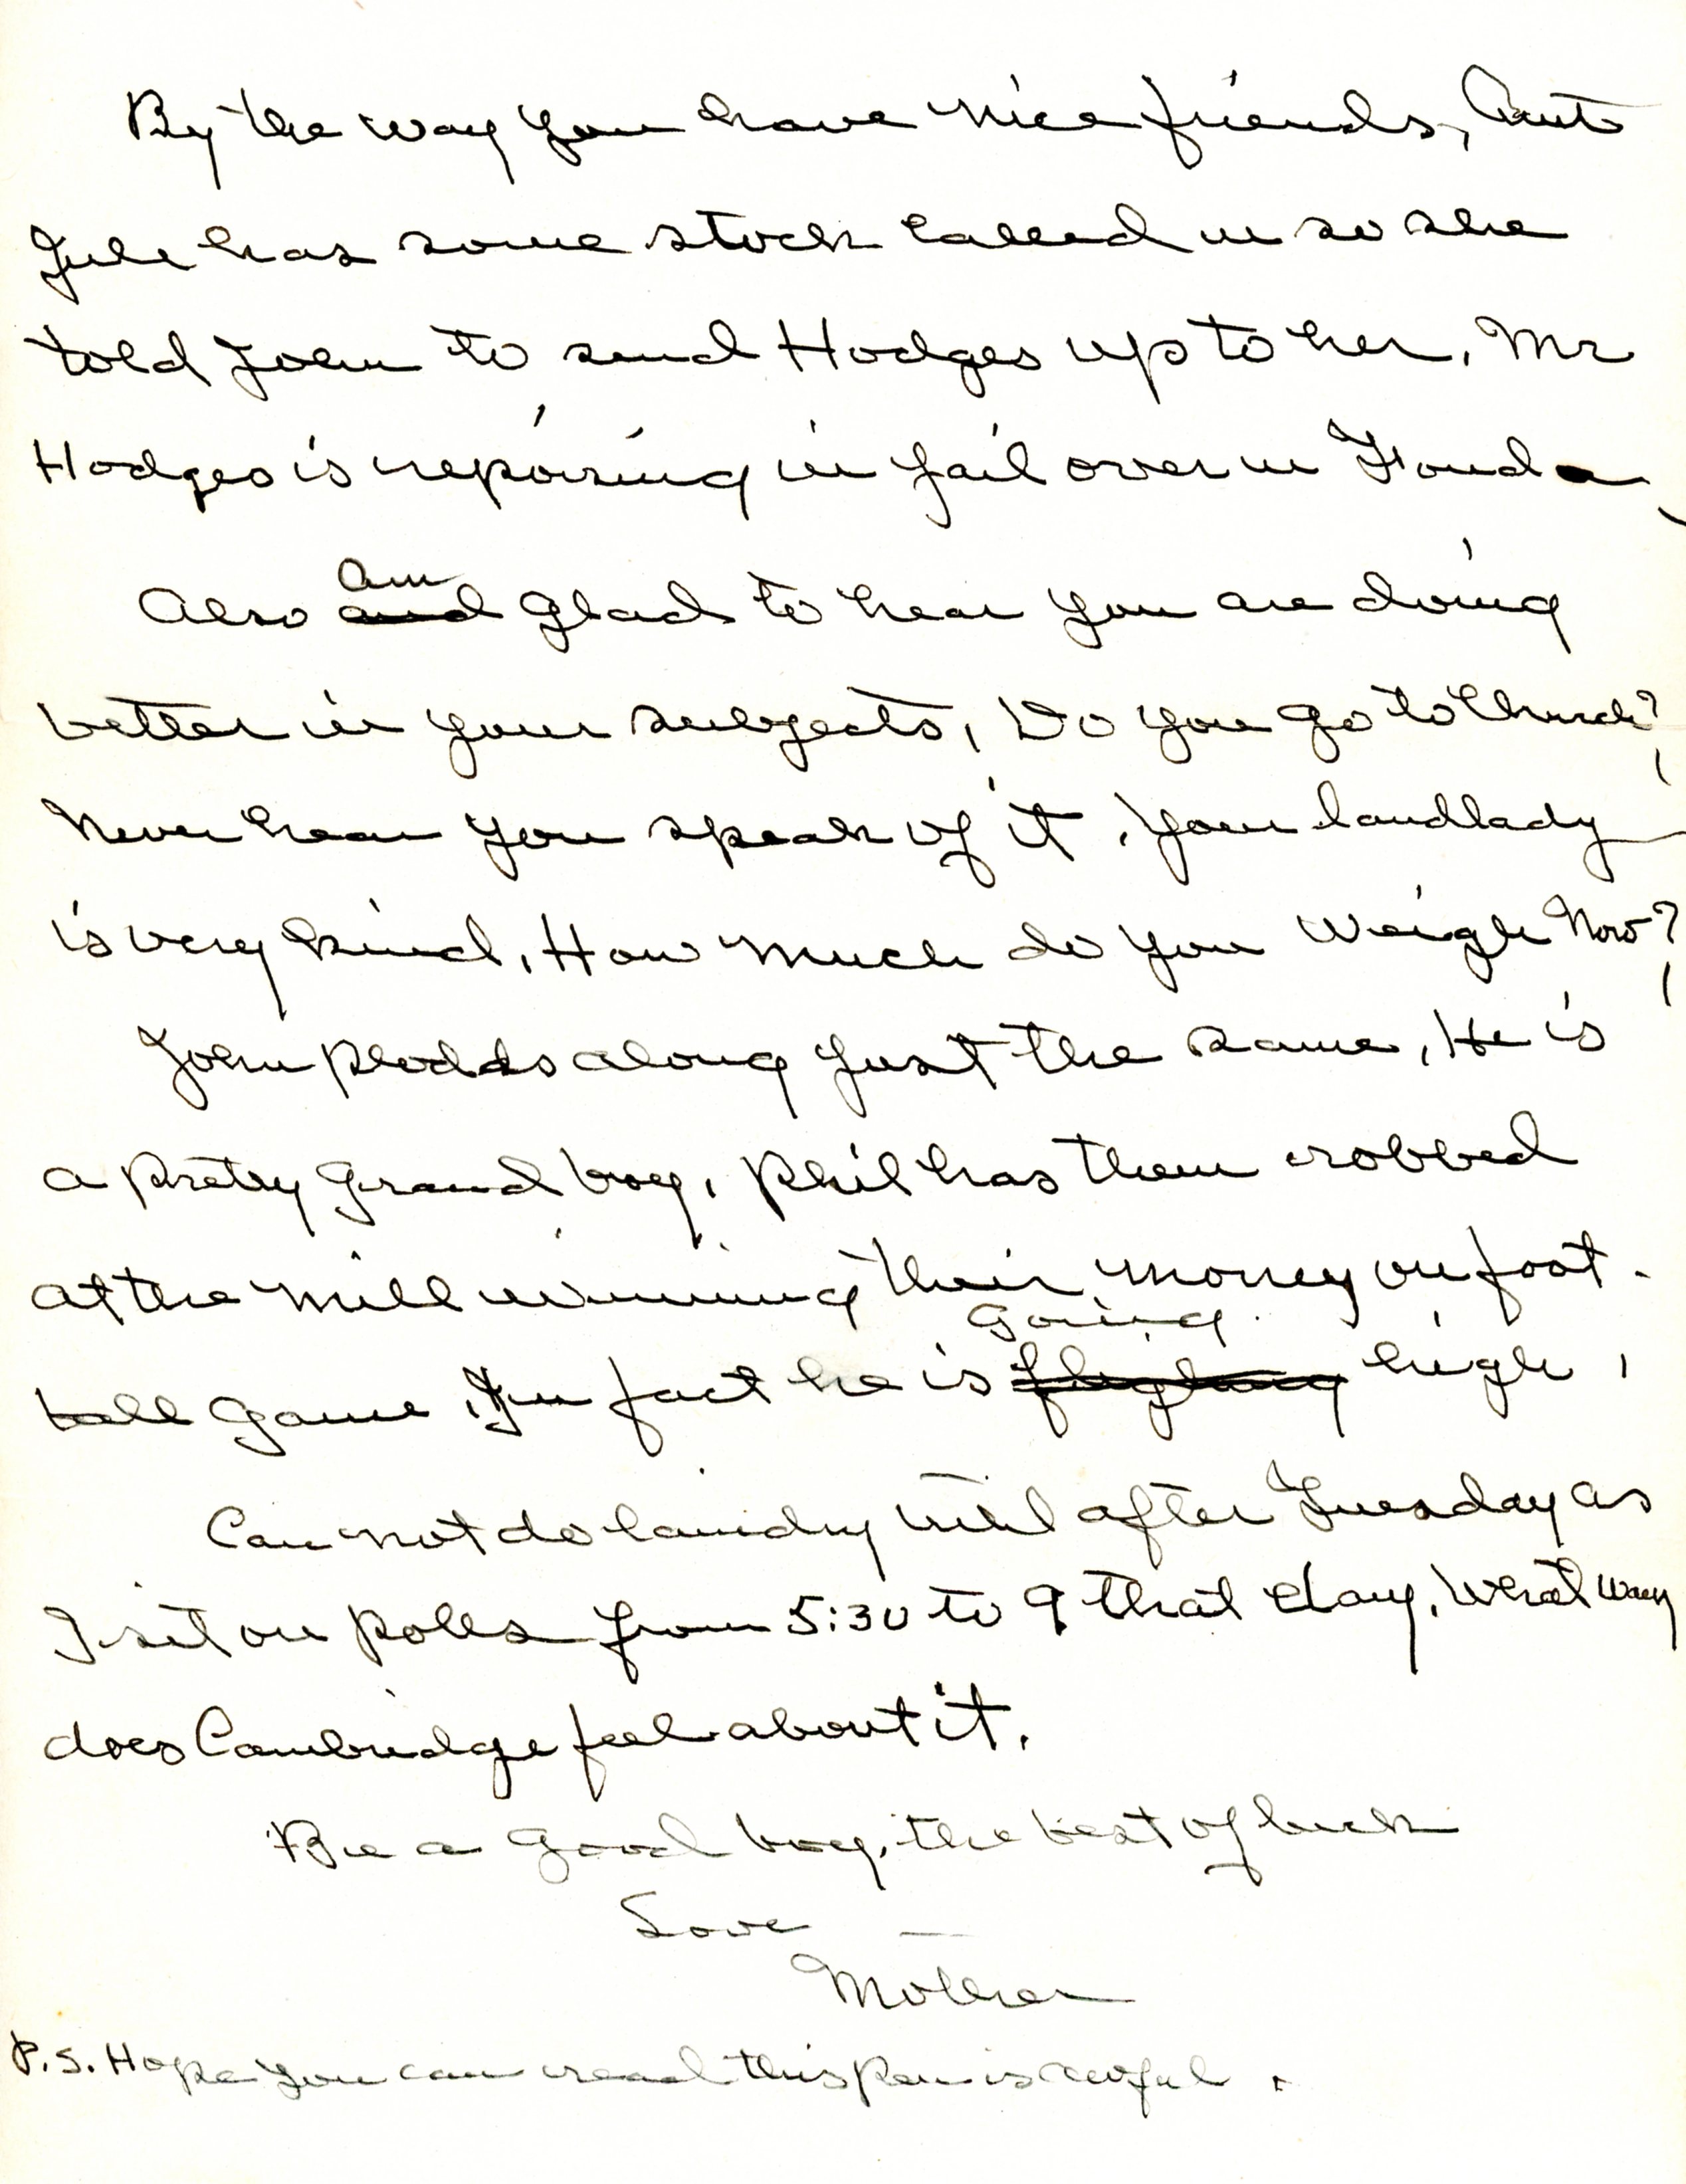 By the way you have nice friends, Aunt
Jule has some stock called in so she
told John to send Hodges up to her. Mr
Hodges is reposing in jail over in Fonda.
Also am and glad to hear you are doing
better in your subjects. Do you go to Church?
Never hear you speak of it. Your landlady
is very kind. How much do you weigh now?
John plodds along just the same. He is
a pretty grand boy. Phil has them robbed
at the mill winning their money on foot-
going
ball game. In fact he is high.
Can not do laundry until after Tuesday as
I sit on polls from 5:30 to 9 that day. What way
does Cambridge feel about it.
Be a good boy, the best of luck
Love —
Mother
P.S. Hope you can read this pen is awful.